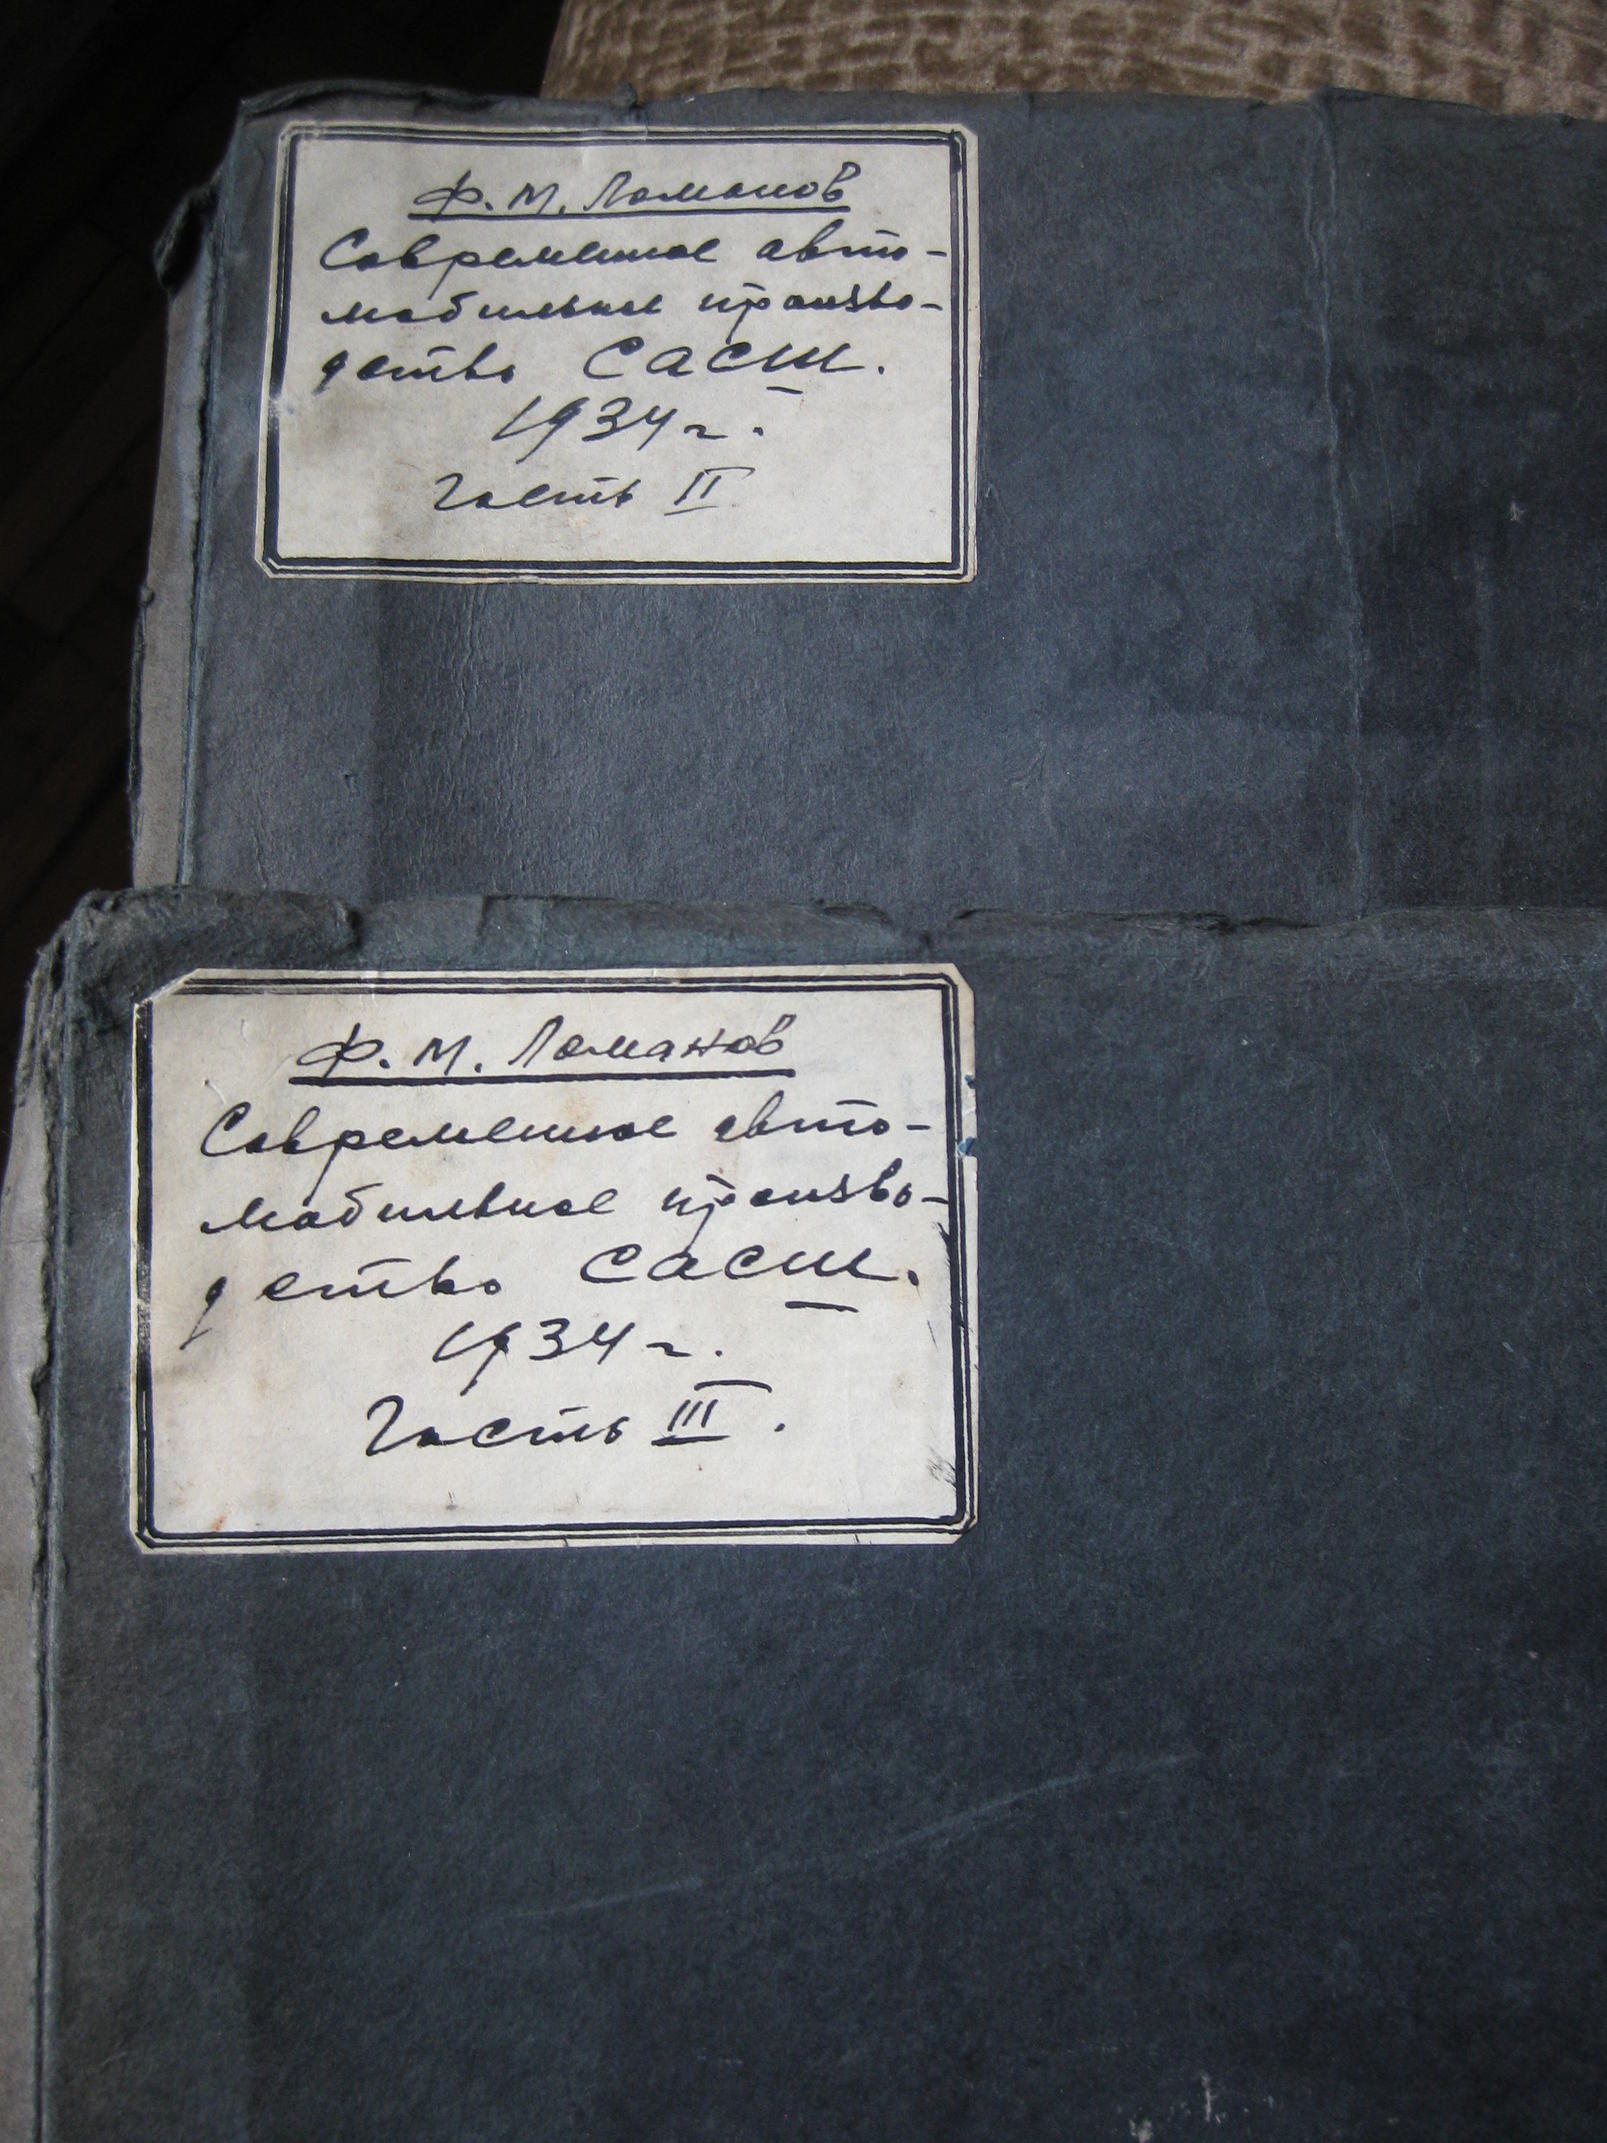 Ф. М. Ломанов
Современное авто-
мобильное произво-
дство САСШ.
1934 г.
Часть II
Ф. М. Ломанов
Современное авто-
мобильное произво-
дство САСШ.
1934 г.
Часть III.